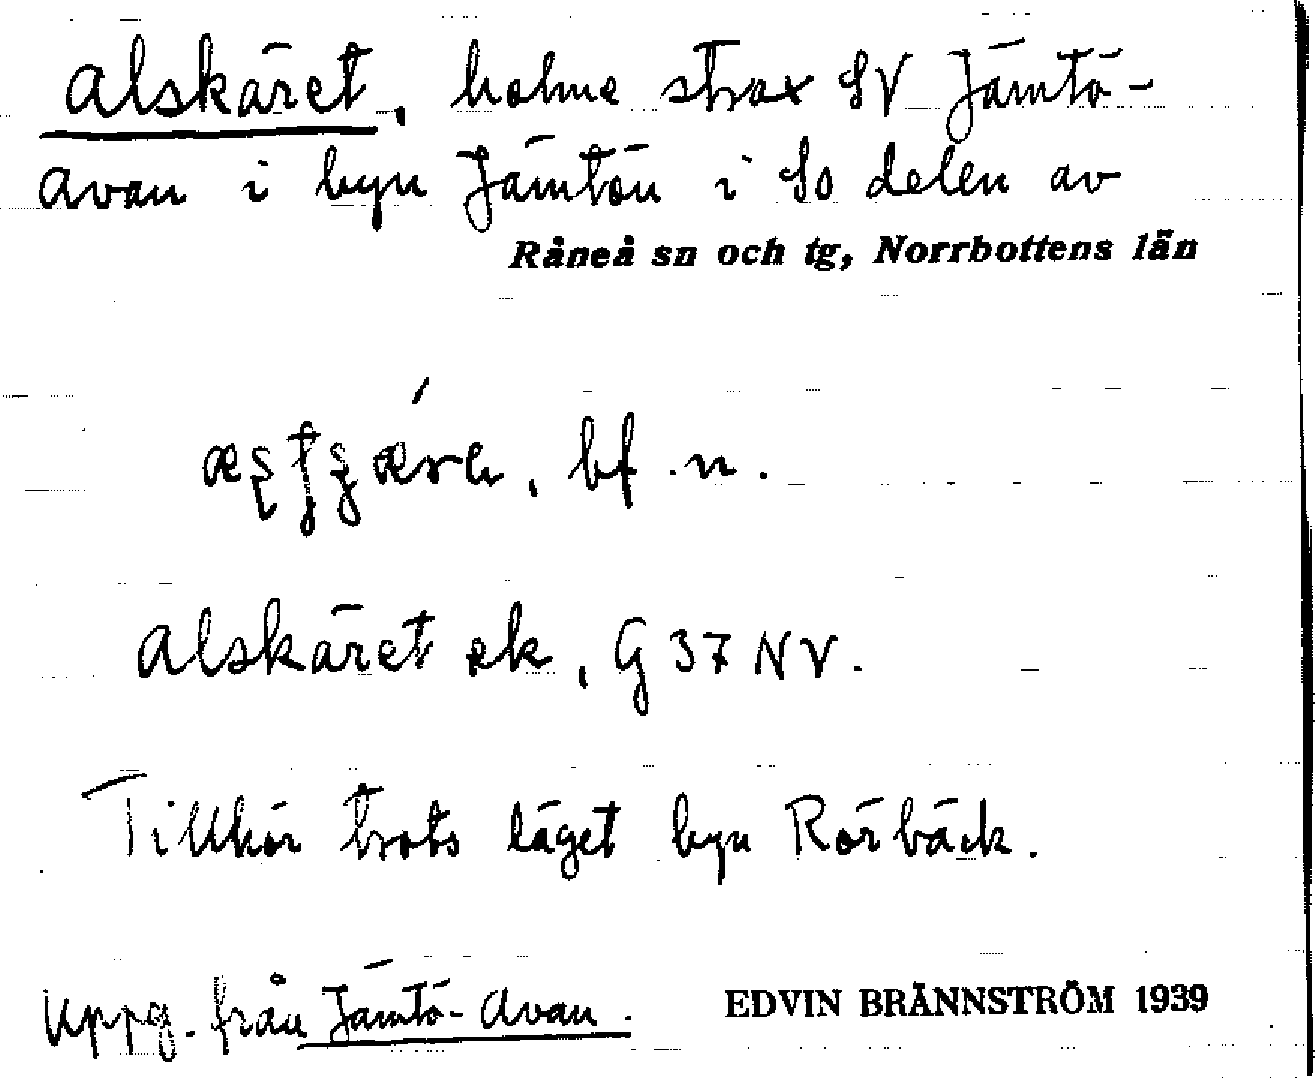 Alskäret, holme strax SV Jämtö-
Avan i byn Jämtön i SO delen av
Råneå sn och tg, Norrbottens län
bf. n.
Alskäret ek, G 37 NV.
Tillhör trots läget byn Rörbäck.
Uppg. från Jämtö-Avan.
EDVIN BRÄNNSTRÖM 1939